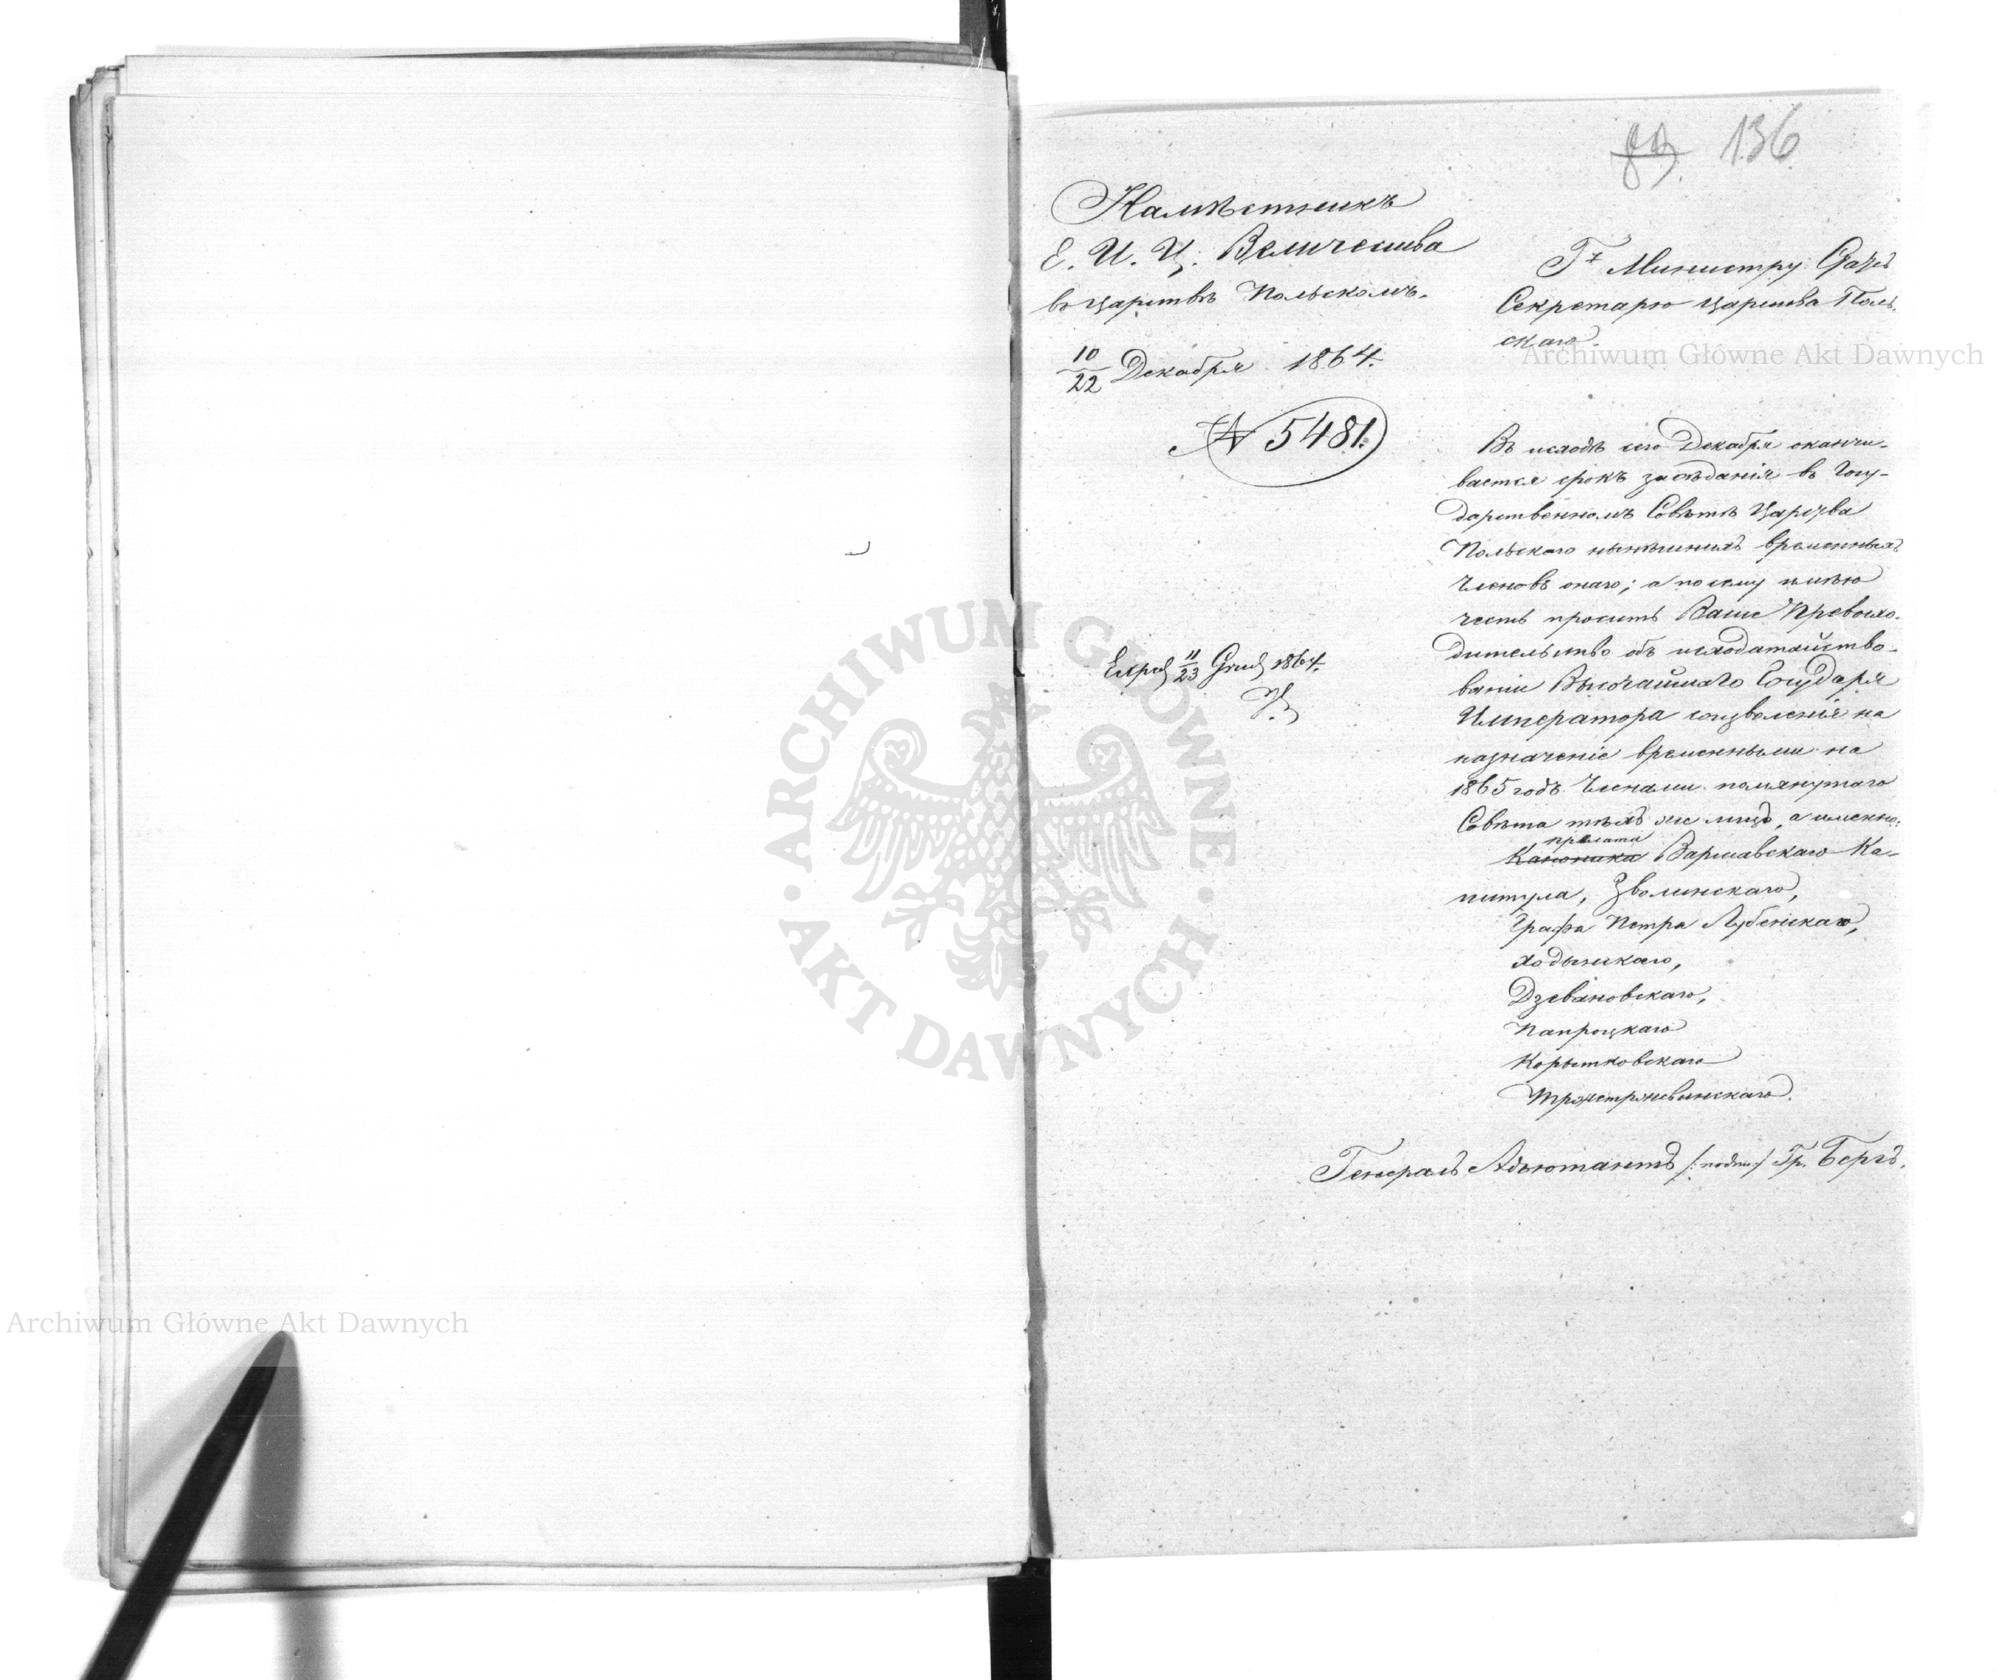 136
Намѣстникъ
Е. И. Ц. Величества
въ Царствѣ Польскомъ.
10/22 Декабря 1864.
№ 5481.
Exped 11/23 Grud 1864.
Гну Министру Статсъ
Секретарю Царства Поль-
скаго.
Въ исходѣ сего Декабря оканчи-
вается срокъ засѣданія въ Госу-
дарственномъ Совѣтѣ Царства
Польскаго нынѣшнихъ временныхъ
Членовъ онаго; а посему имѣю
честь просить Ваше Превосхо-
дительство объ исходатайство-
ваніи Высочайшаго Государя
Императора соизволенія на
назначеніе временными на
1865 годъ Членами помянутаго
Совѣта тѣхъ же лицъ, а именно:
прелата
Каноника Варшавскаго Ка-
питула, Зволинскаго,
Графа Петра Лубенскаго,
Ходынскаго,
Дзевановскаго,
Папроцкаго
Корытковскаго
Генералъ Адъютантъ /:подпис:/ Гр. Бергъ.
ARCHIWUM GŁÓWNE AKT DAWNYCH
Archiwum Główne Akt Dawnych
Archiwum Główne Akt Dawnych